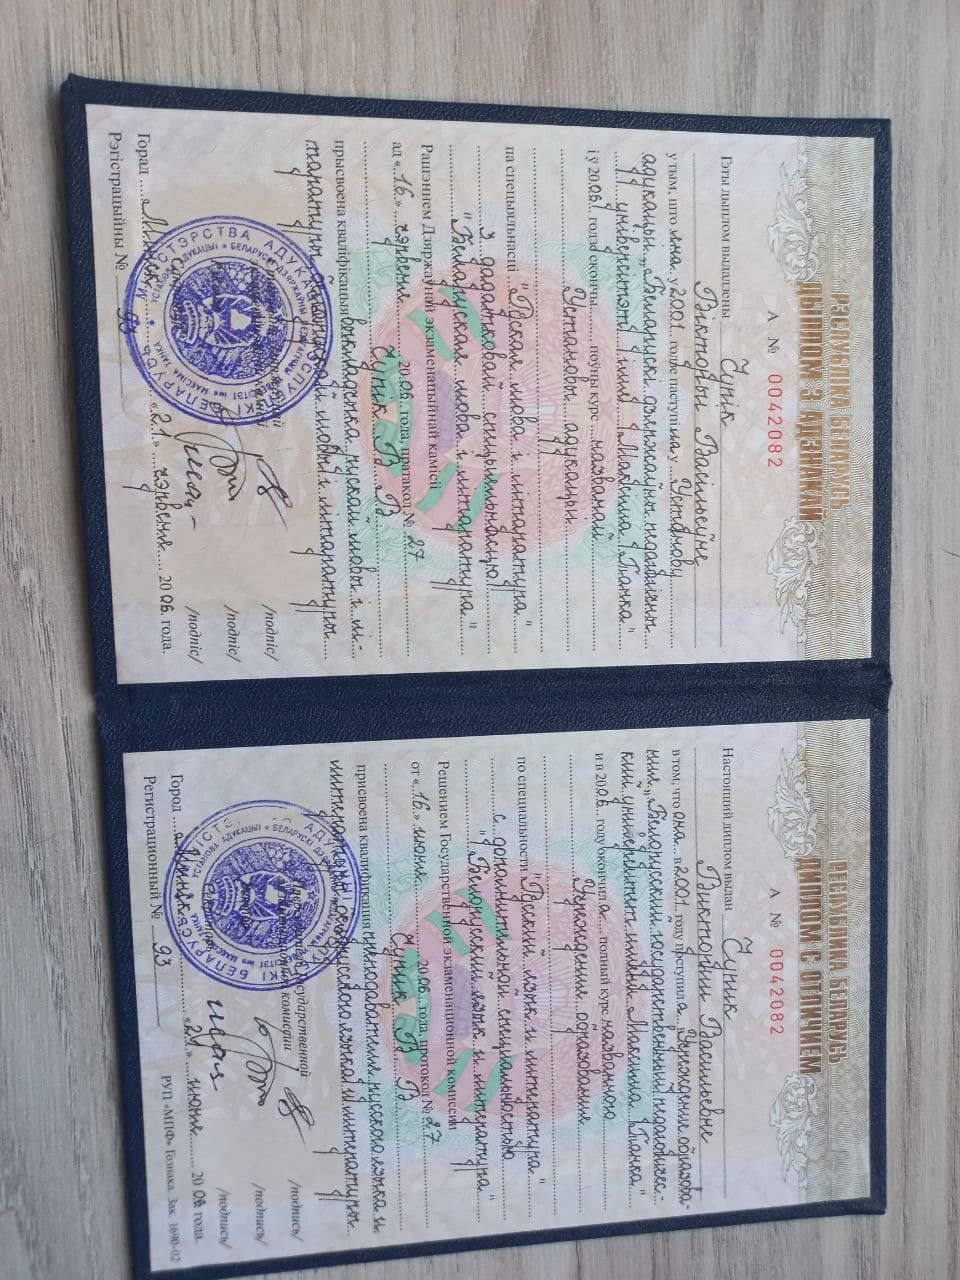 РЭСПУБЛІКА БЕЛАРУСЬ
ДЫПЛОМ З АДЗНАКАЙ
А № 0042082
Гэты дыплом выдадзены Чупік
Вікторыі Васільеўне
у тым, што яна у 2001 годзе паступіла у Установу
адукацыі „Беларускі дзяржаўны педагагічны
універсітэт імя Максіма Танка"
і ў 2006 годзе скончыла поўны курс названай
Установы адукацыі
па спецыяльнасці "Руская мова і літаратура"
з дадатковай спецыяльнасцю
"Беларуская мова і літаратура"
Рашэннем Дзяржаўнай экзаменацыйнай камісіі
ад «16» чэрвеня 2006 года, пратакол № 27
Чупік В. В.
прысвоена кваліфікацыя выкладчыка рускай мовы і лі-
таратуры, беларускай мовы і літаратуры
/подпіс/
/подпіс/
/подпіс/
Горад Мінск «21» чэрвеня 2006 года.
Рэгістрацыйны № 93
РЕСПУБЛИКА БЕЛАРУСЬ
ДИПЛОМ С ОТЛИЧИЕМ
А № 0042082
Настоящий диплом выдан Чупик
Виктории Васильевне
в том, что она в 2001 году поступила в Учреждение образова-
ния „Белорусский государственный педагогичес-
кий университет имени Максима Танка"
и в 2006 году окончила полный курс названного
Учреждения образования
по специальности "Русский язык и литература"
с дополнительной специальностью
"Белорусский язык и литература"
Решением Государственной экзаменационной комиссии
от «16» июня 2006 года, протокол № 27
Чупик В. В.
присвоена квалификация преподавателя русского языка и
литературы, белорусского языка и литературы
Председатель Государственной
экзаменационной комиссии
/подпись/
/подпись/
/подпись/
Город Минск «21» июня 2006 года.
Регистрационный № 93
РУП «МПФ» Гознака. Зак. 1690-02